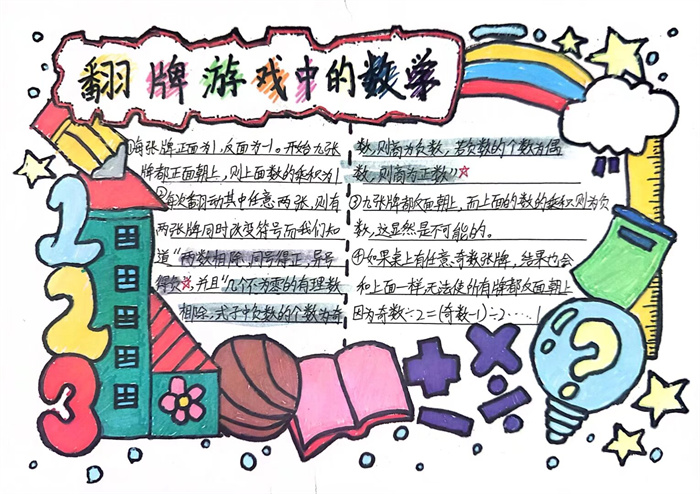 翻牌游戏中的数学
①每张牌正面为1,反面为-1。开始九张
牌都正面朝上,则上面数的乘积为1
②每次翻动其中任意两张,则有
两张牌同时改变符号而我们知
道“两数相除,同号得正,异号
得负☆,并且“几个不为零的有理数
相除,式子中负数的个数为奇
数,则商为负数,若负数的个数为偶
数,则商为正数”☆
③九张牌都反面朝上,而上面的数的乘积则为负
数,这显然是不可能的。
④如果桌上有任意奇数张牌,结果也会
和上面一样,无法使所有牌都反面朝上
因为奇数÷2=(奇数-1)÷2……1
1
2
3
+
×
-
÷
?